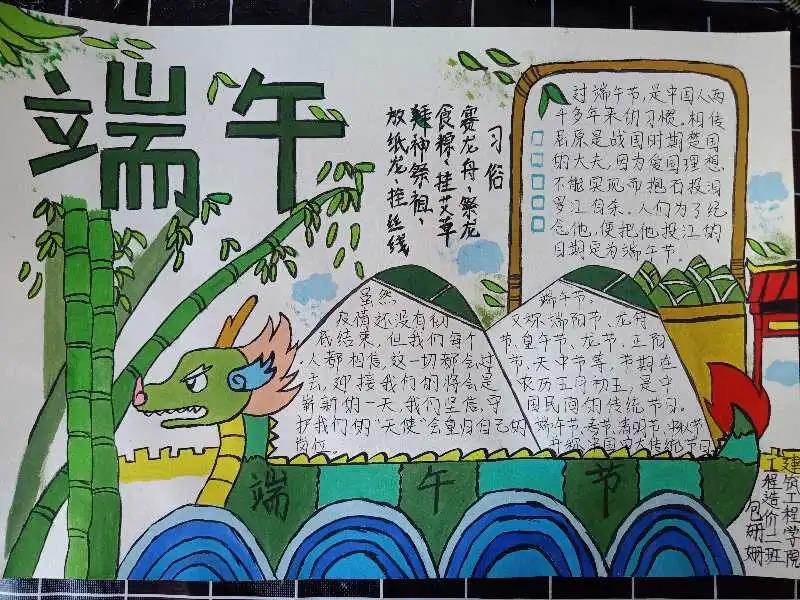 端午
习俗
赛龙舟、祭龙
食粽、挂艾草
拜神祭祖、
放纸龙拴丝线
过端午节,是中国人两
千多年来的习惯。相传
屈原是战国时期楚国
的大夫,因为爱国理想
不能实现而抱石投汨
罗江自杀。人们为了纪
念他,便把他投江的
日期定为端午节。
虽然,
疫情还没有彻
底结束,但我们每个
人都相信,这一切都会过
去,迎接我们的将会是
崭新的一天,我们坚信,守
护我们的“天使”会皇归自己的
岗位
端午节,
又称端阳节、龙舟
节、皇午节、龙节、正阳
节、天中节等,节期在
农历五月初五,是中
国民间的传统节日。
端午节、春节、清明节、中秋节
并称中国四大传统节日
端午节
建筑工程学院
工程造价一班
包姗姗